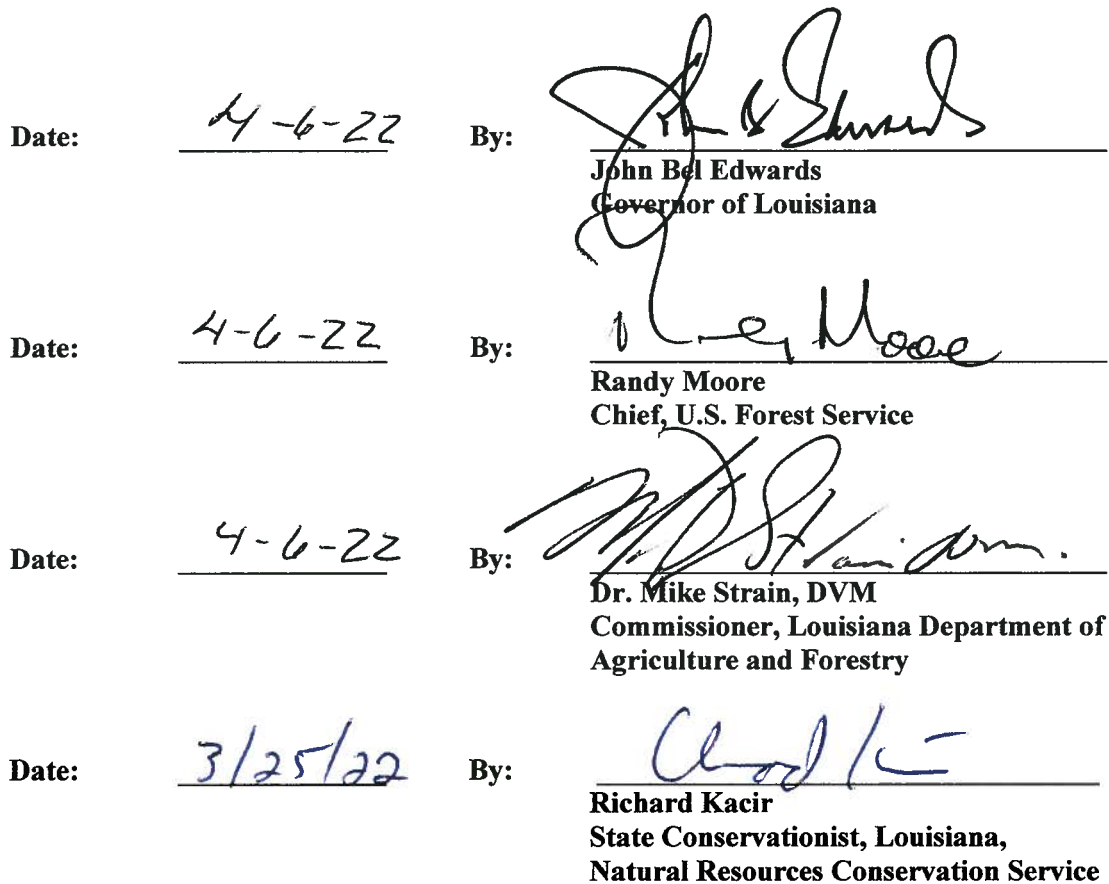 Date: 4-6-22 By: John B Edwards
John Bel Edwards
Governor of Louisiana
Date: 4-6-22 By: Randy Moore
Randy Moore
Chief, U.S. Forest Service
Date: 4-6-22 By: M Strain DVM.
Dr. Mike Strain, DVM
Commissioner, Louisiana Department of
Agriculture and Forestry
Date: 3/25/22 By:
Richard Kacir
State Conservationist, Louisiana,
Natural Resources Conservation Service